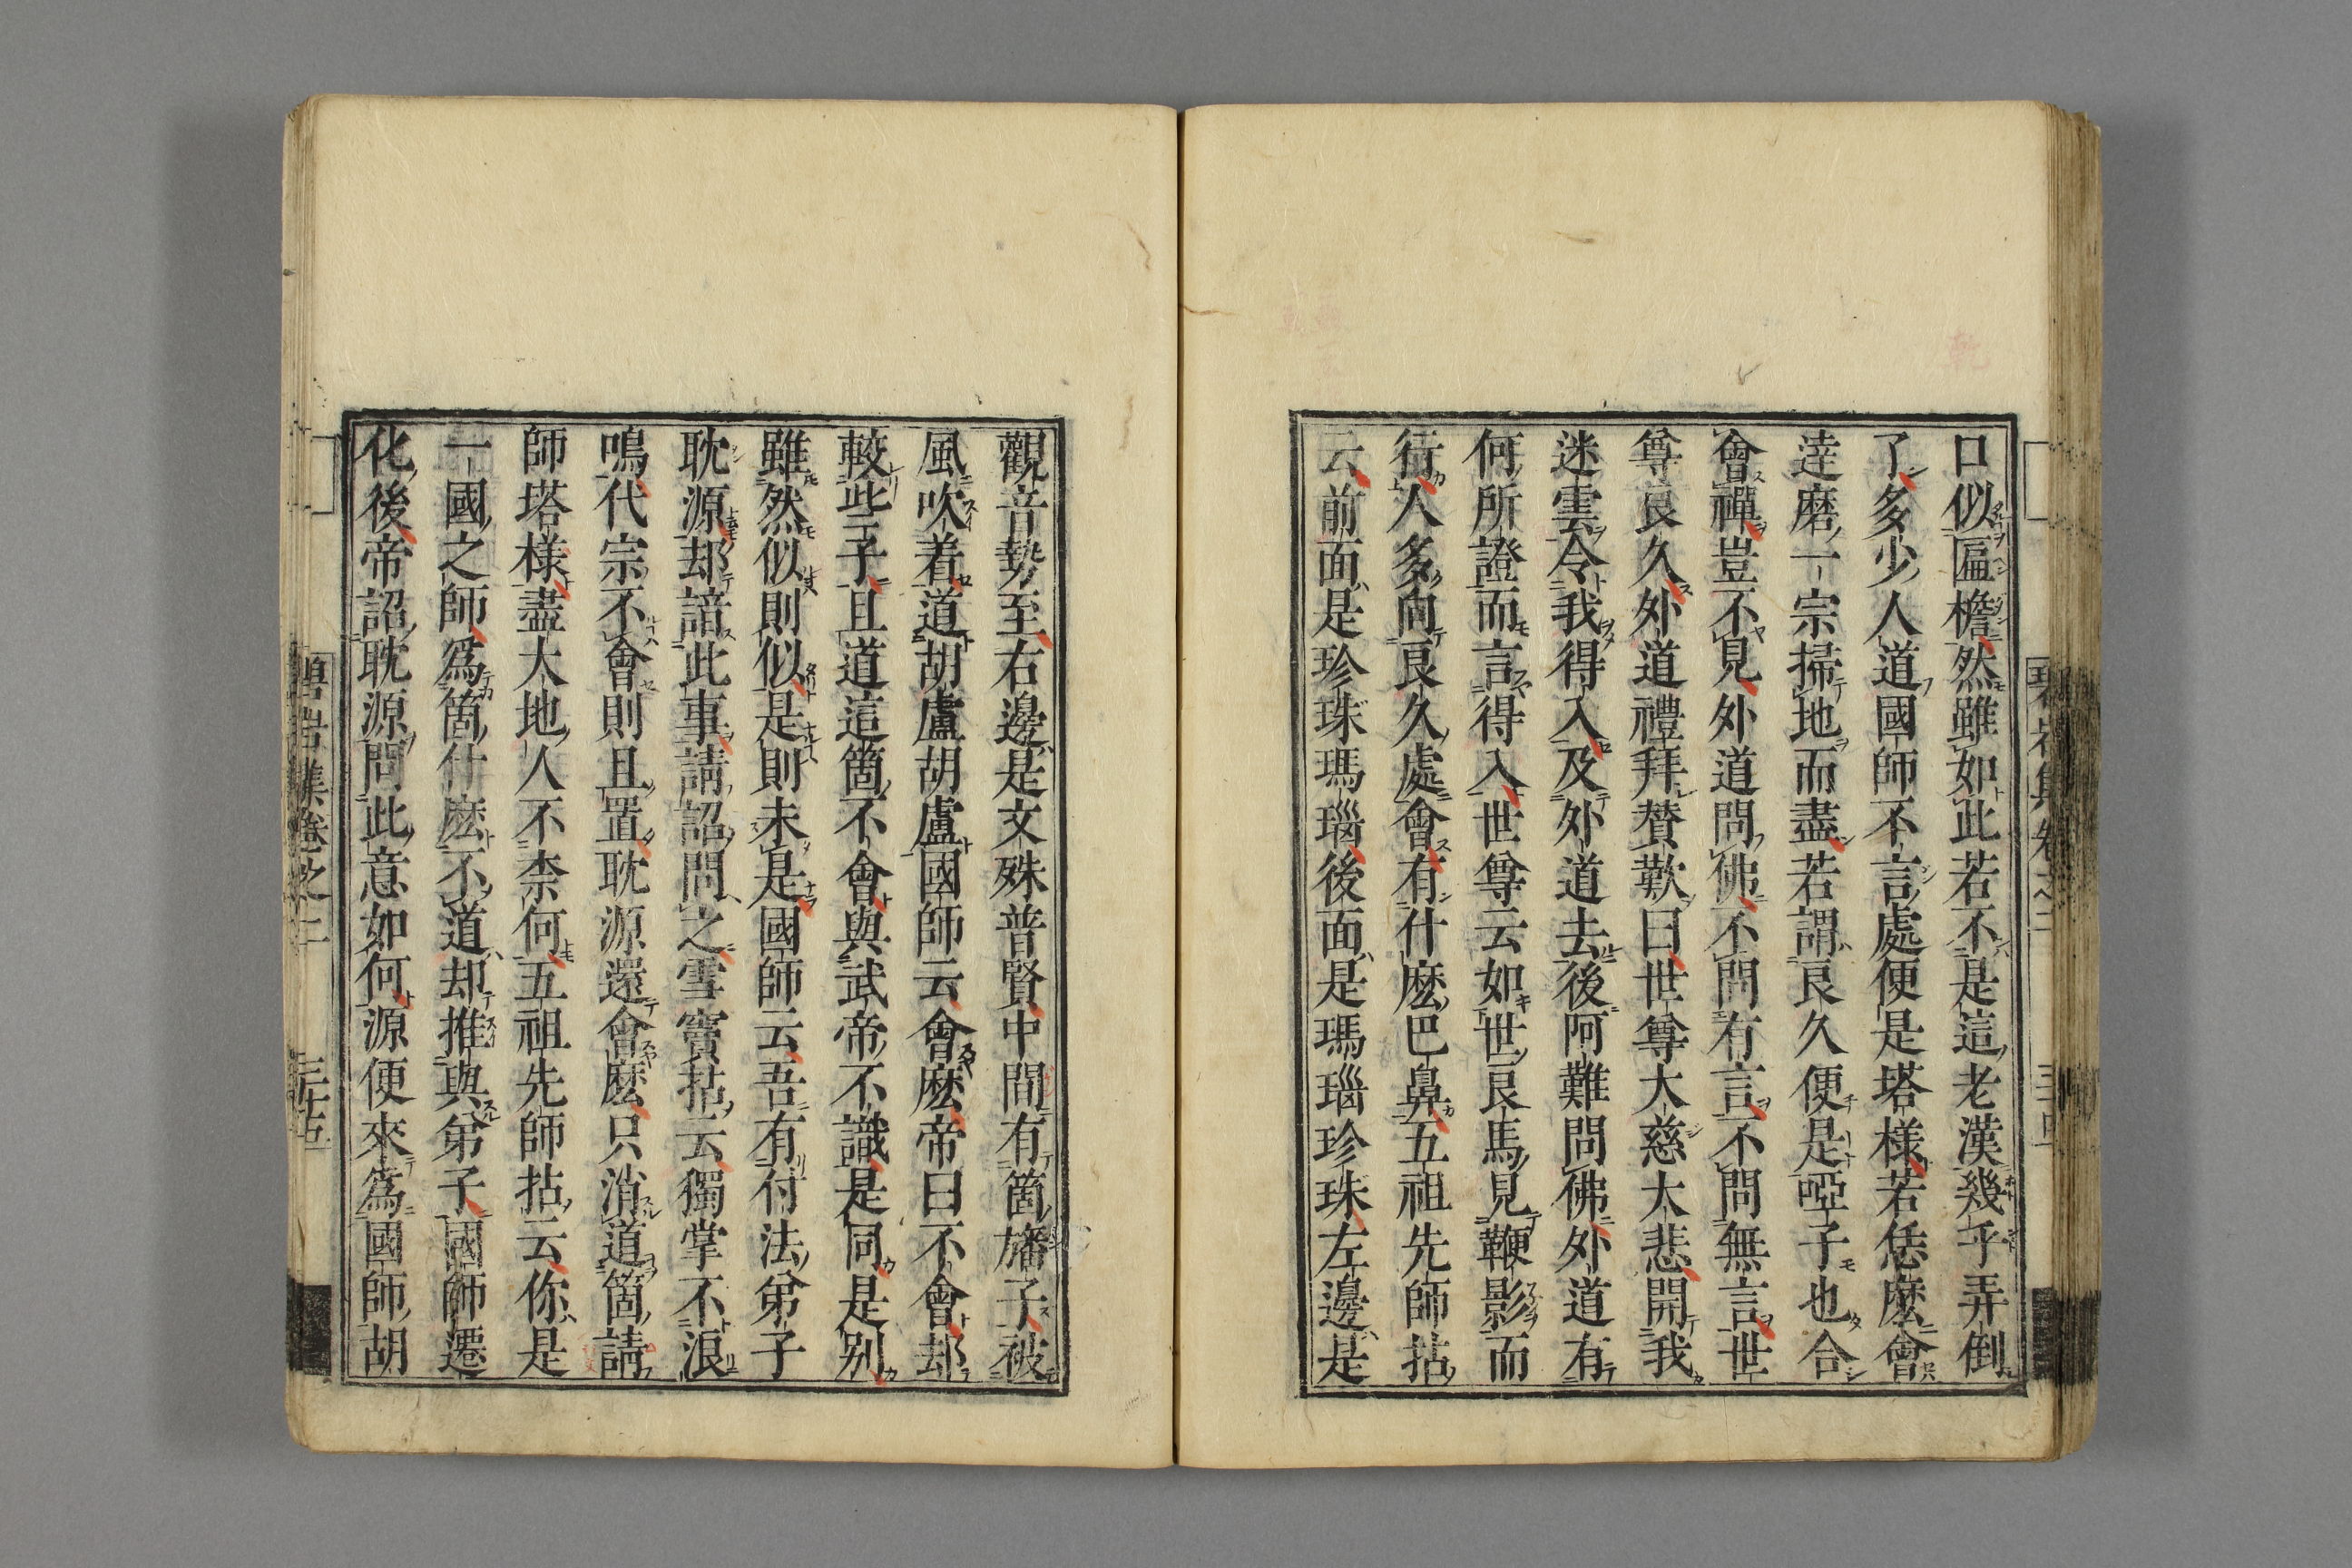 口似匾檐然雖如此若不是這老漢幾乎弄倒
了多少人道國師不言處便是塔樣若恁麽會
達磨一宗掃地而盡若謂良久便是啞子也合
會禪豈不見外道問佛不問有言不問無言世
尊良久外道禮拜賛歎曰世尊大慈大悲開我
迷雲令我得入及外道去後阿難問佛外道有
何所證而言得入世尊云如世良馬見鞭影而
行人多向良久處會有什麽巴鼻五祖先師拈
云前面是珍珠瑪瑙後面是瑪瑙珍珠左邊是
觀音勢至右邊是文殊普賢中間有箇旛子被
風吹着道胡盧胡盧國師云會麽帝曰不會却
較些子且道這箇不會與武帝不識是同是别
雖然似則似是則未是國師云吾有付法弟子
耽源却諳此事請詔問之雪竇拈云獨掌不浪
鳴代宗不會則且置耽源還會麽只消道箇請
師塔樣盡大地人不柰何五祖先師拈云你是
一國之師爲箇什麽不道却推與弟子國師遷
化後帝詔耽源問此意如何源便來爲國師胡
碧岩集卷之二
三十五